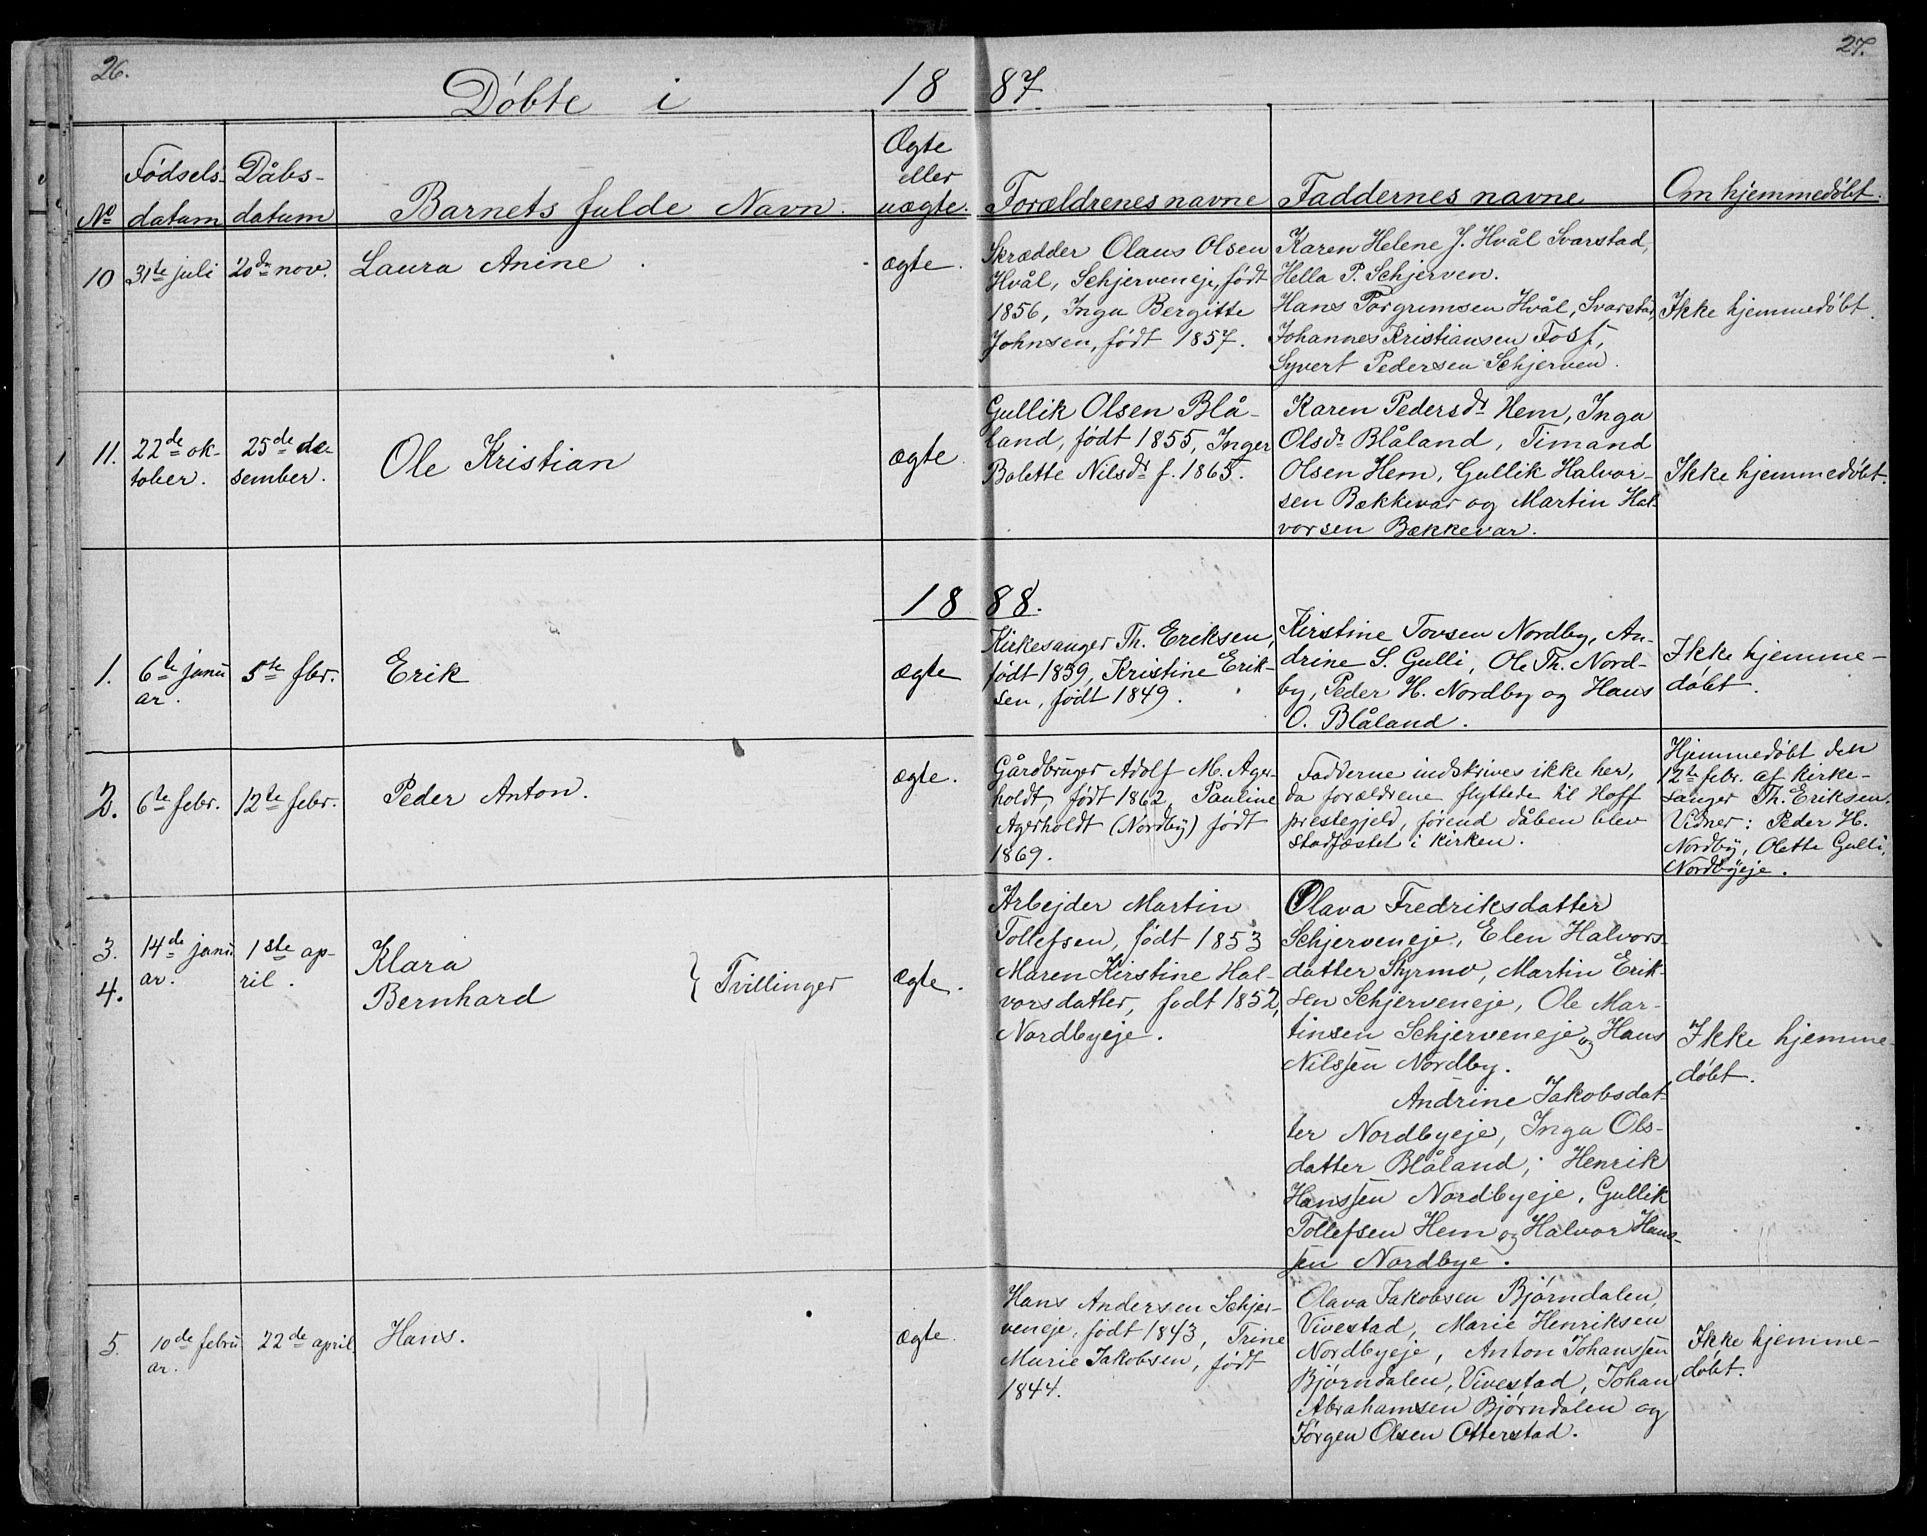 26.
27.
Döbte i 18 87
No
Födsels-
datum
Dåbs-
datum
Barnets fulde Navn.
Ægte
eller
uægte.
Forældrenes navne
Faddernes navne
Om hjemmedöbt.
10
31te juli
20de nov.
Laura Anine
ægte.
Skrædder Olaus Olsen
Hvål, Schjerveneje, födt
1856, Inga Bergitte
Johnsen, födt 1857.
Karen Helene J. Hvål Svarstad,
Hella P. Schjerven.
Hans Torgrimsen Hvål, Svarstad,
Johannes Kristiansen Foss,
Syvert Pedersen Schjerven.
Ikke hjemmedöbt.
11.
22de ok-
tober.
25de de-
sember.
Ole Kristian
ægte.
Gullik Olsen Blå-
land, födt 1855, Inger
Bolette Nilsdr f. 1865.
Karen Pedersdr Hem, Inga
Olsdr Blåland, Timand
Olsen Hem, Gullik Halvor-
sen Bækkevar og Martin Hal-
vorsen Bækkevar.
Ikke hjemmedöbt.
18 88.
1.
6te janu
ar.
5te fbr.
Erik
ægte
Kirkesanger Th. Eriksen,
födt 1839, Kristine Erik-
sen, födt 1849.
Kirstine Tovsen Nordby, An-
drine S. Gulli, Ole Th. Nord-
by, Peder H. Nordby og Hans
O. Blåland.
Ikke hjemme-
döbt.
2.
6te febr.
12te febr.
Peder Anton.
ægte.
Gårdbruger Adolf M. Ager-
holdt, födt 1862, Pauline
Agerholdt (Nordby) födt
1869.
Fadderne indskrives ikke her,
da forældrene flyttede til Hoff
prestegjeld, förend dåben blev
stadfæstet i kirken.
Hjemmedöbt den
12te febr. af kirke-
sanger Th. Eriksen.
Vidner: Peder H.
Nordby, Olette Gulli,
Nordbyeje.
3.
4.
14de janu
ar.
1ste ap-
ril.
Klara
Bernhard
} Tvillinger
Ægte.
Arbejder Martin
Tollefsen, födt 1853
Maren Kirstine Hal-
vorsdatter, födt 1852,
Nordbyeje.
Olava Fredriksdatter
Schjerveneje, Elen Halvors-
datter Styrmo, Martin Erik-
sen Schjerveneje, Ole Mar-
tinsen Schjerveneje og Hans
Nilssen Nordby.
Andrine Jakobsdat-
ter Nordbyeje, Inga Ols-
datter Blåland, Henrik
Hanssen Nordbyeje, Gullik
Tollefsen Hem og Halvor Hans-
sen Nordbye.
Ikke hjemme-
döbt.
5.
10de febru
ar.
22de april
Hans.
ægte.
Hans Andersen Schjer-
veneje, födt 1843, Trine
Marie Jakobsen, födt
1844.
Olava Jakobsen Bjørndalen,
Vivestad, Marie Henriksen
Nordbyeje, Anton Johanssen
Bjørndalen, Vivestad, Johan
Abrahamsen Bjørndalen og
Jørgen Olsen Otterstad.
Ikke hjemme-
döbt.